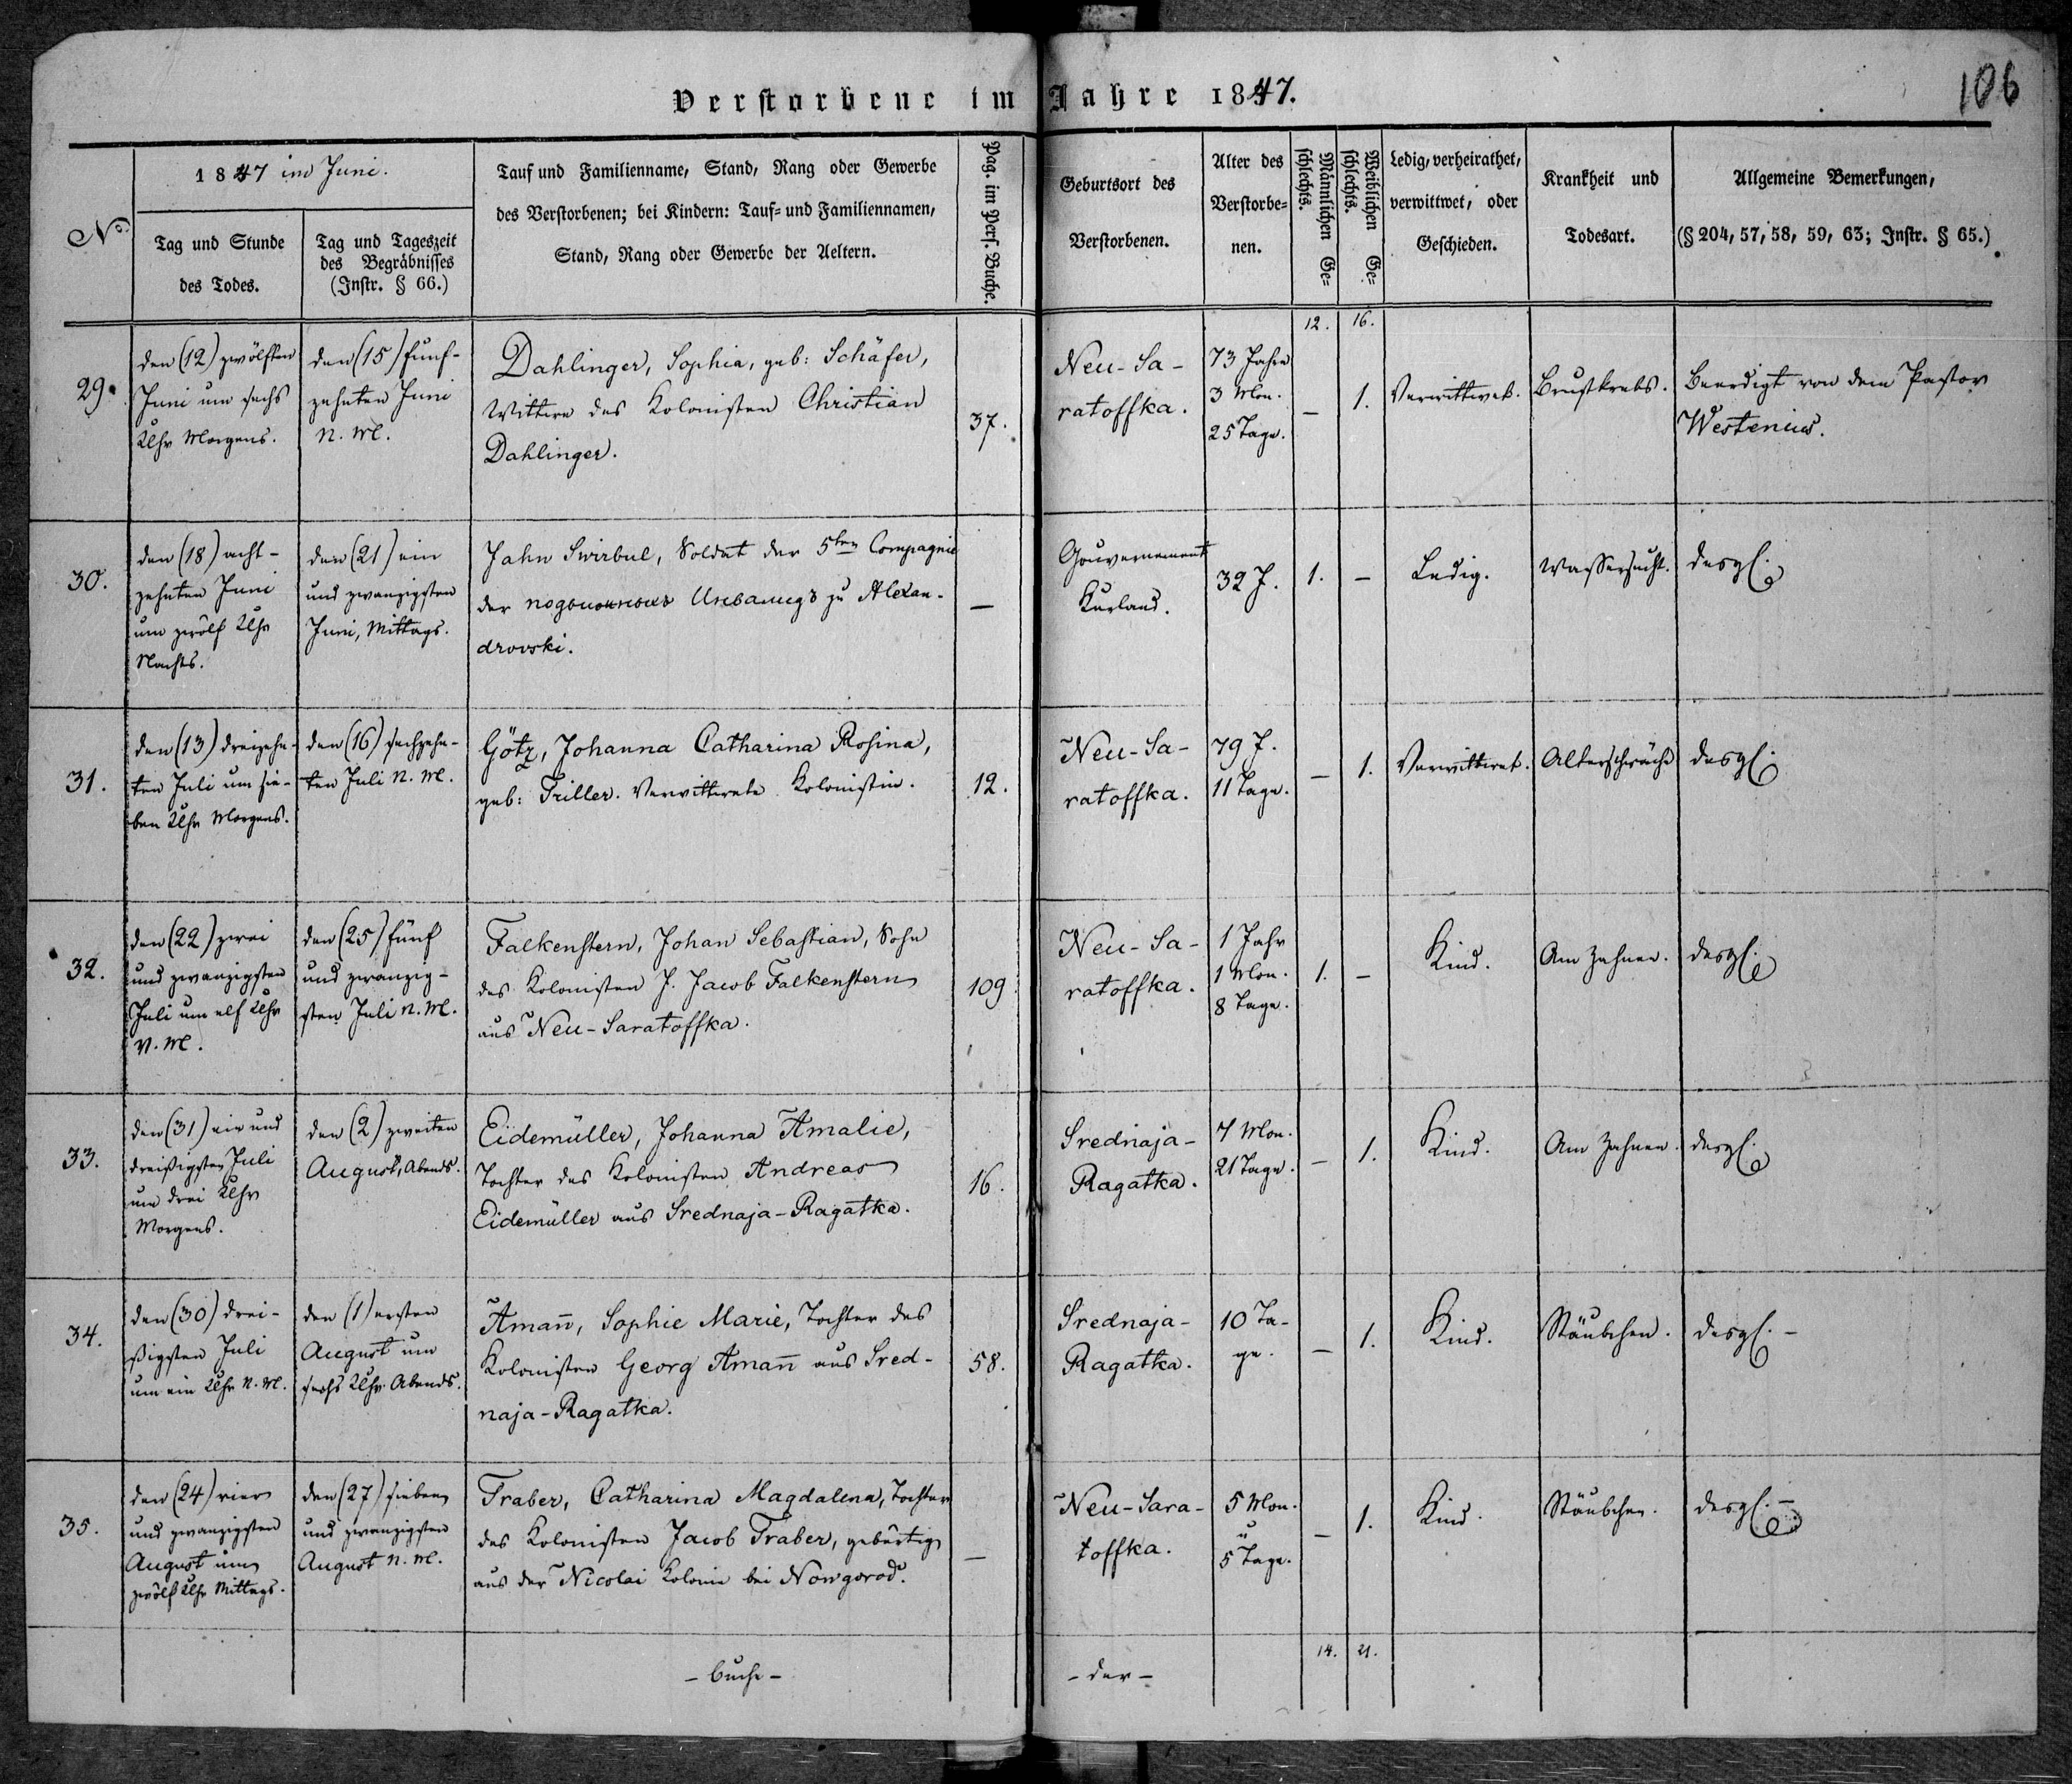 Verstorbene im Jahre 1847.
106
No.
1847 im Juni.
Tag und Stunde
des Todes.
Tag und Tageszeit
des Begräbnisses
(Instr. § 66.)
Tauf und Familienname, Stand, Rang oder Gewerbe
des Verstorbenen; bei Kindern: Tauf- und Familiennamen,
Stand, Rang oder Gewerbe der Aeltern.
Pag. im Pers. Buche.
Geburtsort des
Verstorbenen.
Alter des
Verstorbe-
nen.
Männlichen Ge-
schlechts.
Weiblichen Ge-
schlechts.
Ledig, verheirathet,
verwittwet, oder
Geschieden.
Krankheit und
Todesart.
Allgemeine Bemerkungen,
(§ 204, 57, 58, 59, 63; Instr. § 65.)
12. 16.
29.
den (12) zwölften
Juni um sechs
Uhr Morgens.
den (15) fünf-
zehnten Juni
N. M.
Dahlinger, Sophia, geb: Schäfer,
Wittwe des Kolonisten Christian
Dahlinger.
37.
Neu-Sa-
ratoffka.
73 Jahre
3 Mon.
25 Tage.
–
1.
Verwittwet.
Brustkrebs.
Beerdigt von dem Pastor
Westenius.
30.
den (18) acht-
zehnten Juni
um zwölf Uhr
Nachts.
den (21) ein
und zwanzigsten
Juni, Mittags.
Jahn Swirbul, Soldat der 5ten Compagnie
der Инвалидъ zu Alexan-
drovski.
–
Gouvernement
Kurland.
32 J.
1.
–
Ledig.
Wassersucht.
desgl.
31.
den (13) dreizehn-
ten Juli um sie-
ben Uhr Morgens.
den (16) sechzehn-
ten Juli N. M.
Götz, Johanna Catharina Rosina,
geb: Triller. Verwittwete Kolonistin.
12.
Neu-Sa-
ratoffka.
79 J.
11 Tage.
–
1.
Verwittwet.
Alterschwäche
desgl.
32.
den (22) zwei
und zwanzigsten
Juli um elf Uhr
V. M.
den (25) fünf
und zwanzig-
sten Juli N. M.
Falkenstern, Johan Sebastian, Sohn
des Kolonisten J. Jacob Falkenstern
aus Neu-Saratoffka.
109
Neu-Sa-
ratoffka.
1 Jahr
1 Mon.
8 Tage.
1.
–
Kind.
Am Zahnen.
desgl.
33.
den (31) ein und
dreißigsten Juli
um drei Uhr
Morgens.
den (2) zweiten
August, Abends.
Eidemüller, Johanna Amalie,
Tochter des Kolonisten Andreas
Eidemüller aus Srednaja-Ragatka.
16.
Srednaja-
Ragatka.
7 Mon.
21 Tage.
–
1.
Kind.
Am Zahnen.
desgl.
34.
den (30) drei-
ßigsten Juli
um ein Uhr N. M.
den (1) ersten
August um
sechs Uhr Abends.
Amañ, Sophie Marie, Tochter des
Kolonisten Georg Amañ aus Sred-
naja-Ragatka.
58.
Srednaja-
Ragatka.
10 Ta-
ge.
–
1.
Kind.
Stäubchen.
desgl. –
35.
den (24) vier
und zwanzigsten
August um
zwölf Uhr Mittags.
den (27) sieben
und zwanzigsten
August N. M.
Traber, Catharina Magdalena, Tochter
des Kolonisten Jacob Traber, gebürtig
aus der Nicolai Kolonie bei Nowgorod.
–
Neu-Sara-
toffka.
5 Mon.
u
5 Tage.
–
1.
Kind.
Stäubchen.
desgl. –
14. 21.
– buche –
– der –